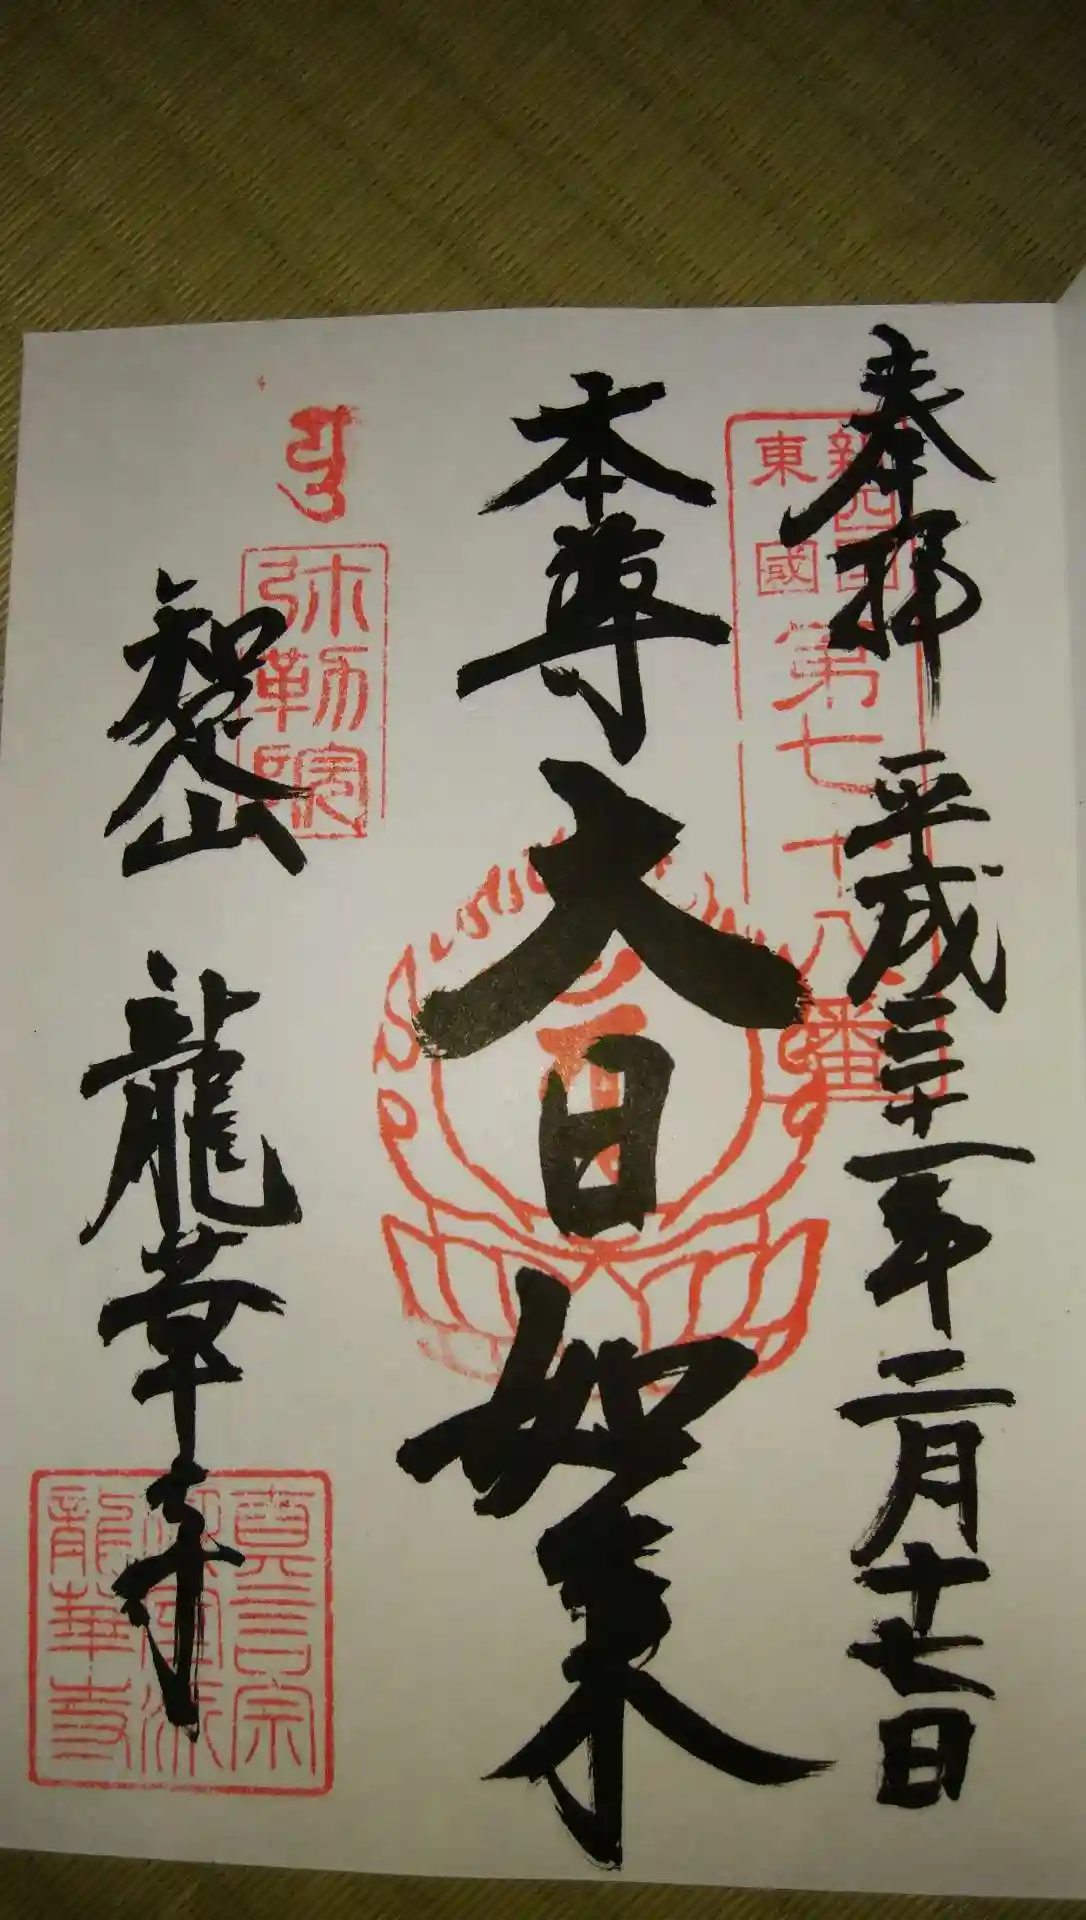 奉拝
平成三十一年二月十七日
東國
第七十八番
本尊
大日如来
弥勒院
智山
龍華寺
真言宗
龍華寺